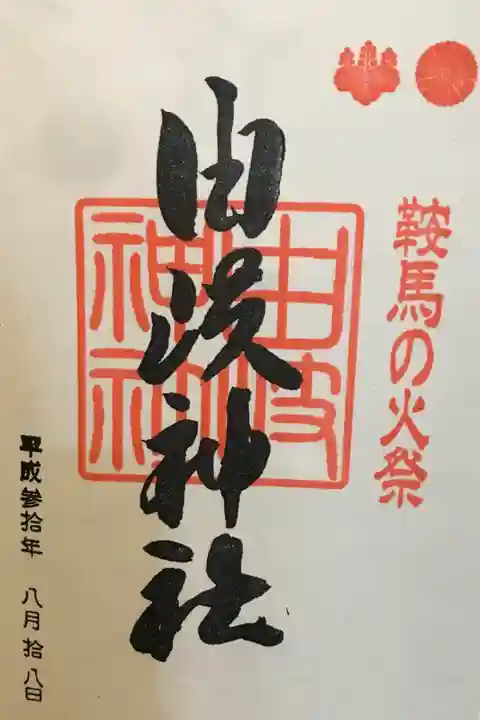 鞍馬の火祭
由岐神社
由岐神社
平成参拾年 八月拾八日